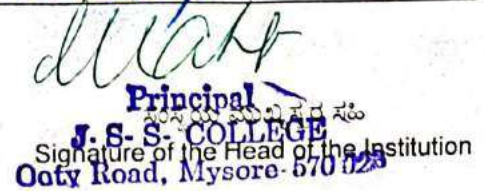 Principal
ಸಂಸ್ಥೆಯ ಮುಖ್ಯಸ್ಥರ ಸಹಿ
J. S- S- COLLEGE
Signature of the Head of the Institution
Ooty Road, Mysore- 570 025